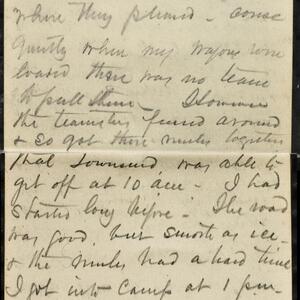 where they pleased - conse
quently when my wagons were
loaded there was no team
to pull them - However
the teamsters found around
& so got their mules together
that Townsend was able to
get off at 10 a.m - I had
started long before - The road
was good, but smooth as ice -
& the mules had a hard time
I got into camp at 1 pm -